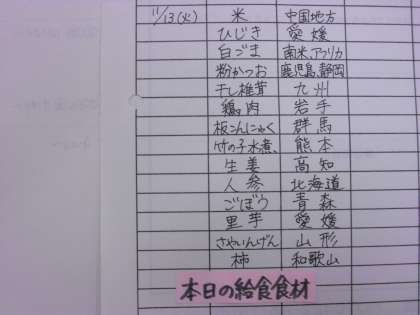 11/13(火) 米 中国地方
ひじき 愛媛
白ごま 南米、アフリカ
粉かつお 鹿児島、静岡
干し椎茸 九州
鶏肉 岩手
板こんにゃく 群馬
竹の子水煮 熊本
生姜 高知
人参 北海道
ごぼう 青森
里芋 愛媛
さやいんげん 山形
柿 和歌山
本日の給食食材